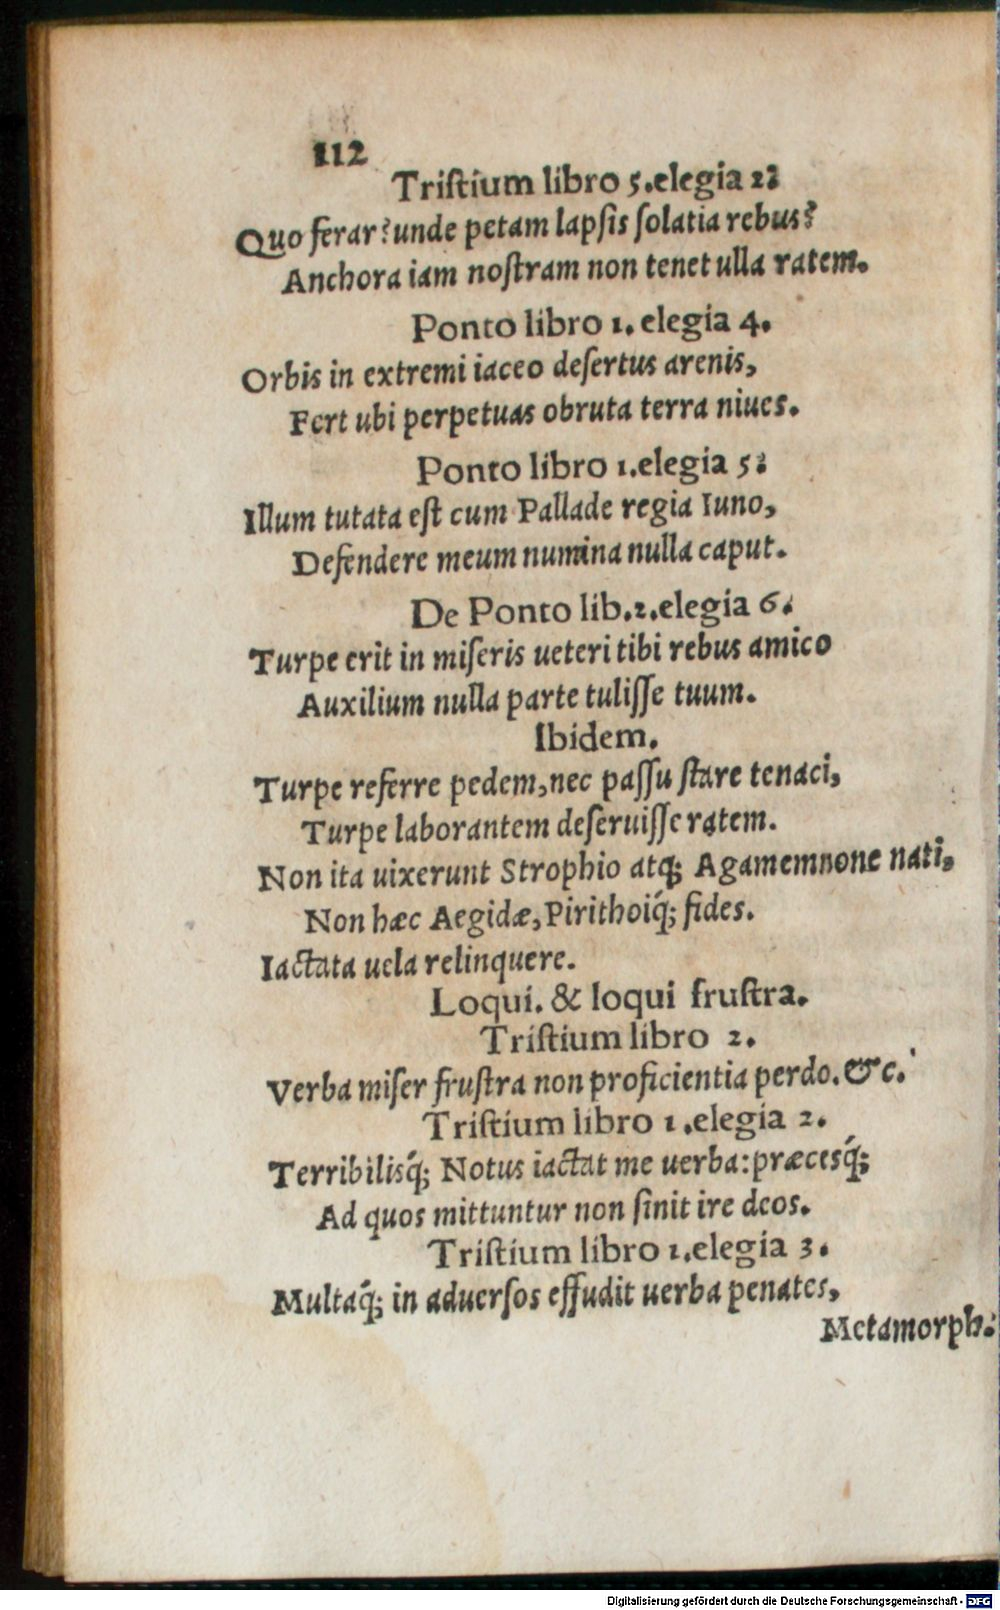 112
Tristium libro 5. elegia 2.
Quo ferar? unde petam lapsis solatia rebus?
Anchora iam nostram non tenet ulla ratem.
Ponto libro 1. elegia 4.
Orbis in extremi iaceo desertus arenis,
Fert ubi perpetuas obruta terra niues.
Ponto libro 1. elegia 5.
Illum tutata est cum Pallade regia Iuno,
Defendere meum numina nulla caput.
De Ponto lib. 2. elegia 6.
Turpe erit in miseris ueteri tibi rebus amico
Auxilium nulla parte tulisse tuum.
Ibidem.
Turpe referre pedem, nec passu stare tenaci,
Turpe laborantem deseruisse ratem.
Non ita uixerunt Strophio atq; Agamemnone nati,
Non hæc Aegidæ, Pirithoiq́; fides.
Iactata uela relinquere.
Loqui. & loqui frustra.
Tristium libro 2.
Verba miser frustra non proficientia perdo. &c.
Tristium libro 1. elegia 2.
Terribilisq́; Notus iactat me uerba: præcesq́;
Ad quos mittuntur non sinit ire deos.
Tristium libro 1. elegia 3.
Multaq́; in aduersos effudit uerba penates,
Metamorph.
Digitalisierung gefördert durch die Deutsche Forschungsgemeinschaft - DFG